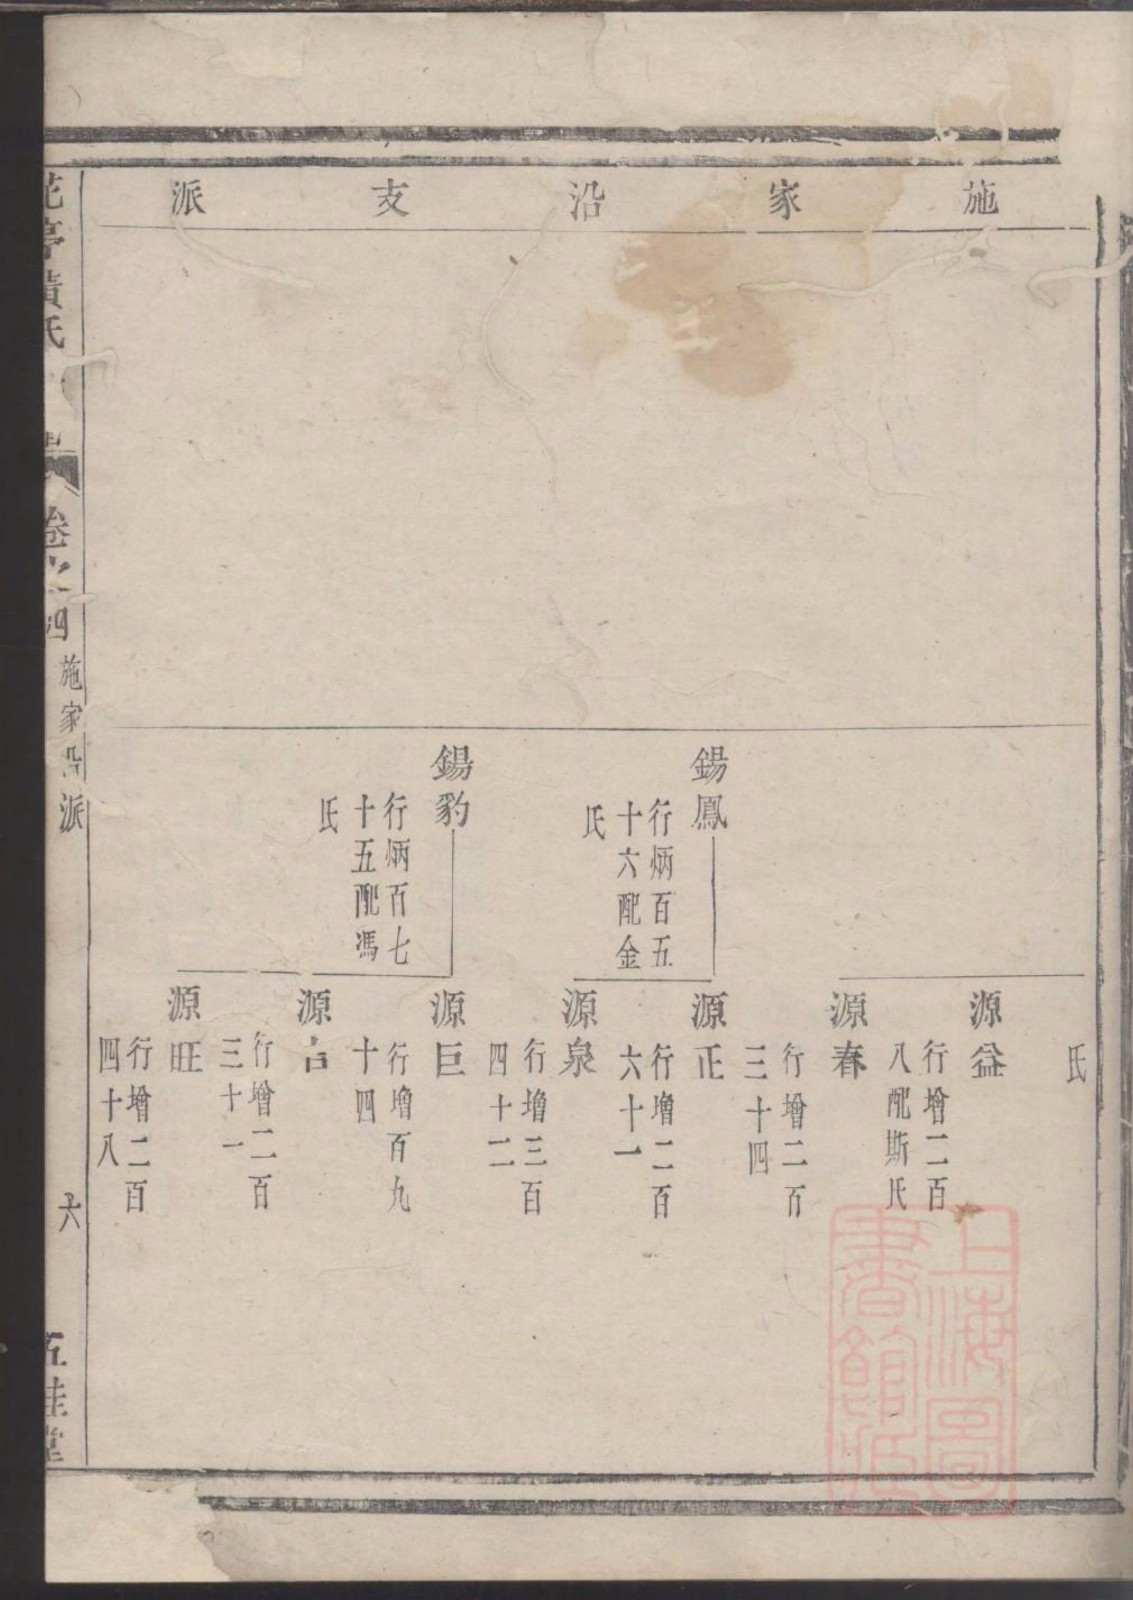 施家沿支派
氏
源益
行增二百
八配斯氏
源春
行增二百
三十四
錫鳳
行炳百五
十六配金
氏
源正
行增二百
六十一
源泉
行增三百
四十二
錫豹
行炳百七
十五配馮
氏
源巨
行增百九
十四
源吉
行增二百
三十一
源旺
行增二百
四十八
花亭黃氏
卷之四
施家沿派
六
五桂堂
上海圖
書館藏